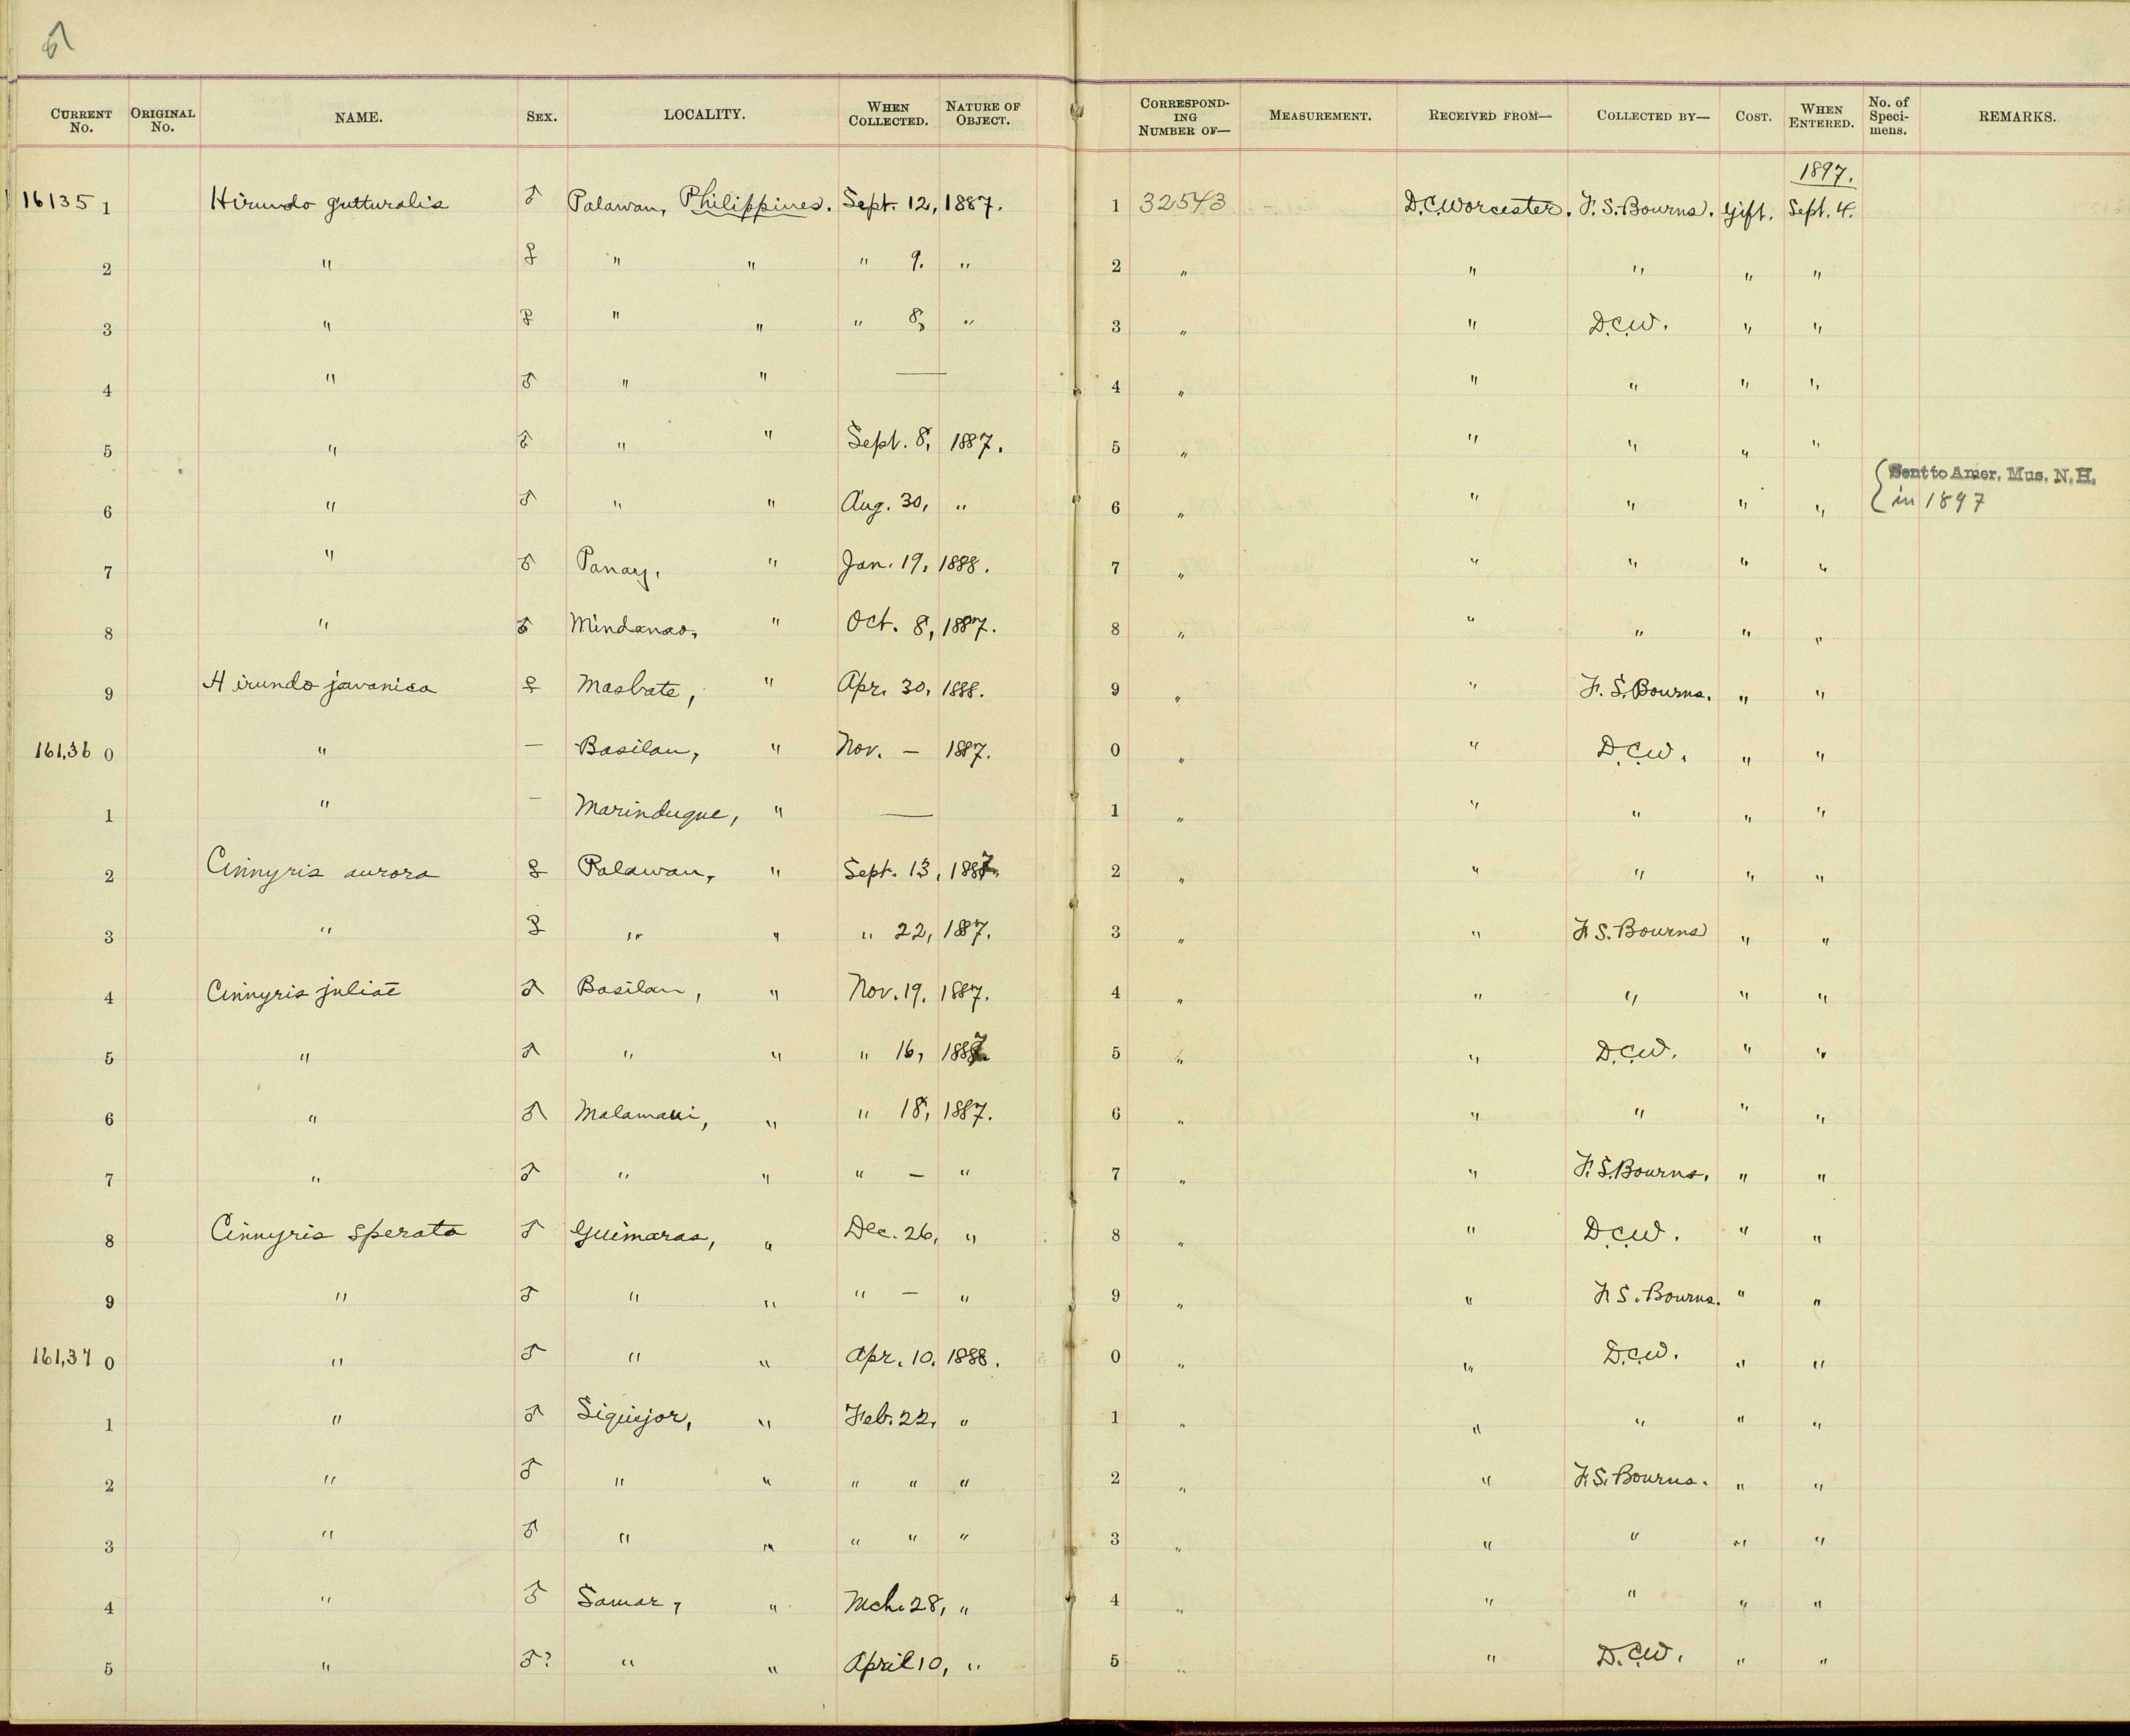 CURRENT No. ORIGINAL No. NAME. SEX. LOCALITY. WHEN COLLECTED. NATURE OF OBJECT. CORRESPONDING NUMBER OF— MEASUREMENT. RECEIVED FROM— COLLECTED BY— COST. WHEN ENTERED. No. of Specimens. REMARKS.
1897.
16135 1 Hirundo gutturalis ♂ Palawan, Philippines. Sept. 12, 1887. 1 32543 D.C. Worcester. F. S. Bourns. Gift. Sept. 4.
2 " ♀ " " " 9. " 2 " " " " "
3 " ♀ " " " 8, " 3 " " D.C.W. " "
4 " ♂ " " — 4 " " " " "
5 " ♂ " " Sept. 8, 1887. 5 " " " " "
6 " ♂ " " Aug. 30, " 6 " " " " " { Sent to Amer. Mus. N. H. in 1897
7 " ♂ Panay, " Jan. 19, 1888. 7 " " " " "
8 " ♂ Mindanao, " Oct. 8, 1887. 8 " " " " "
9 Hirundo javanica ♀ Masbate, " Apr. 30, 1888. 9 " " F. S. Bourns. " "
161,36 0 " — Basilan, " Nov. — 1887. 0 " " D.C.W. " "
1 " — Marinduque, " — 1 " " " " "
2 Cinnyris aurora ♀ Palawan, " Sept. 13, 1887. 2 " " " " "
3 " ♀ " " " 22, 1887. 3 " " F. S. Bourns " "
4 Cinnyris juliae ♂ Basilan, " Nov. 19. 1887. 4 " " " " "
5 " ♂ " " " 16, 1887. 5 " " D.C.W. " "
6 " ♂ Malamaui, " " 18, 1887. 6 " " " " "
7 " ♂ " " " — " 7 " " F. S. Bourns. " "
8 Cinnyris sperata ♂ Guimaras, " Dec. 26, " 8 " " D.C.W. " "
9 " ♂ " " " — " 9 " " F. S. Bourns. " "
161,37 0 " ♂ " " Apr. 10. 1888. 0 " " D.C.W. " "
1 " ♂ Siquijor, " Feb. 22, " 1 " " " " "
2 " ♂ " " " " " 2 " " F. S. Bourns. " "
3 " ♂ " " " " " 3 " " " " "
4 " ♂ Samar, " Mch. 28, " 4 " " " " "
5 " ♂? " " April 10, " 5 " " D.C.W. " "